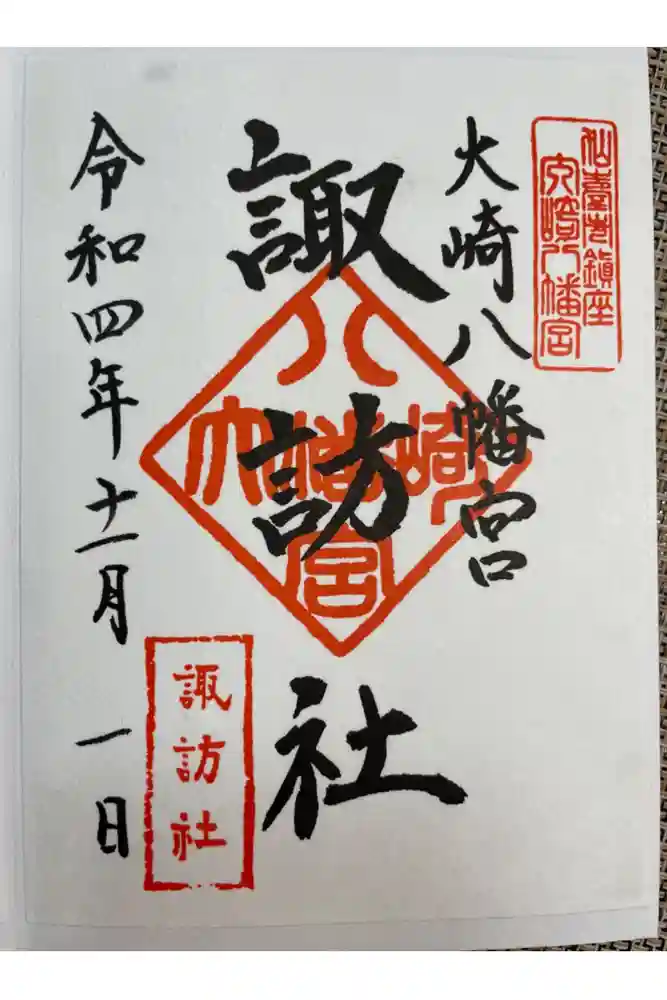 仙臺市鎮座
大崎八幡宮
大崎八幡宮
諏訪社
八
大幡崎
宮
諏訪社
令和四年十一月一日